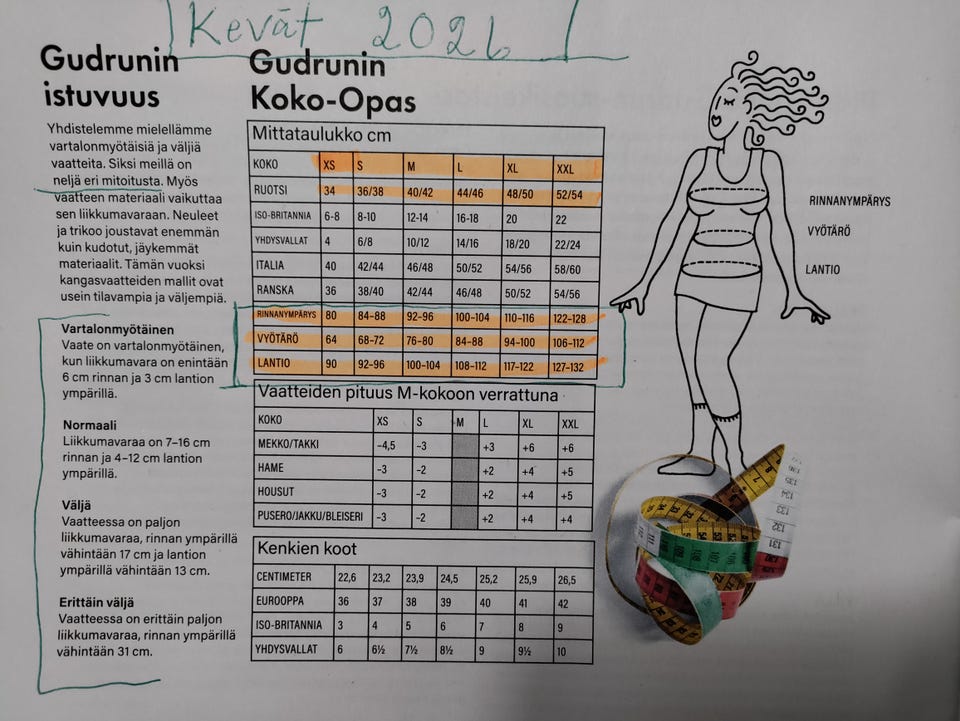 Kevät 2026
Gudrunin
istuvuus
Yhdistelemme mielellämme
vartalonmyötäisiä ja väljiä
vaatteita. Siksi meillä on
neljä eri mitoitusta. Myös
vaatteen materiaali vaikuttaa
sen liikkumavaraan. Neuleet
ja trikoo joustavat enemmän
kuin kudotut, jäykemmät
materiaalit. Tämän vuoksi
kangasvaatteiden mallit ovat
usein tilavampia ja väljempiä.
Vartalonmyötäinen
Vaate on vartalonmyötäinen,
kun liikkumavara on enintään
6 cm rinnan ja 3 cm lantion
ympärillä.
Normaali
Liikkumavaraa on 7–16 cm
rinnan ja 4–12 cm lantion
ympärillä.
Väljä
Vaatteessa on paljon
liikkumavaraa, rinnan ympärillä
vähintään 17 cm ja lantion
ympärillä vähintään 13 cm.
Erittäin väljä
Vaatteessa on erittäin paljon
liikkumavaraa, rinnan ympärillä
vähintään 31 cm.
Gudrunin
Koko-Opas
Mittataulukko cm
KOKO XS S M L XL XXL
RUOTSI 34 36/38 40/42 44/46 48/50 52/54
ISO-BRITANNIA 6-8 8-10 12-14 16-18 20 22
YHDYSVALLAT 4 6/8 10/12 14/16 18/20 22/24
ITALIA 40 42/44 46/48 50/52 54/56 58/60
RANSKA 36 38/40 42/44 46/48 50/52 54/56
RINNANYMPÄRYS 80 84-88 92-96 100-104 110-116 122-128
VYÖTÄRÖ 64 68-72 76-80 84-88 94-100 106-112
LANTIO 90 92-96 100-104 108-112 117-122 127-132
Vaatteiden pituus M-kokoon verrattuna
KOKO XS S M L XL XXL
MEKKO/TAKKI –4,5 –3 +3 +6 +6
HAME –3 –2 +2 +4 +5
HOUSUT –3 –2 +2 +4 +5
PUSERO/JAKKU/BLEISERI –3 –2 +2 +4 +4
Kenkien koot
CENTIMETER 22,6 23,2 23,9 24,5 25,2 25,9 26,5
EUROOPPA 36 37 38 39 40 41 42
ISO-BRITANNIA 3 4 5 6 7 8 9
YHDYSVALLAT 6 6½ 7½ 8½ 9 9½ 10
RINNANYMPÄRYS
VYÖTÄRÖ
LANTIO
135
134
133
132
131